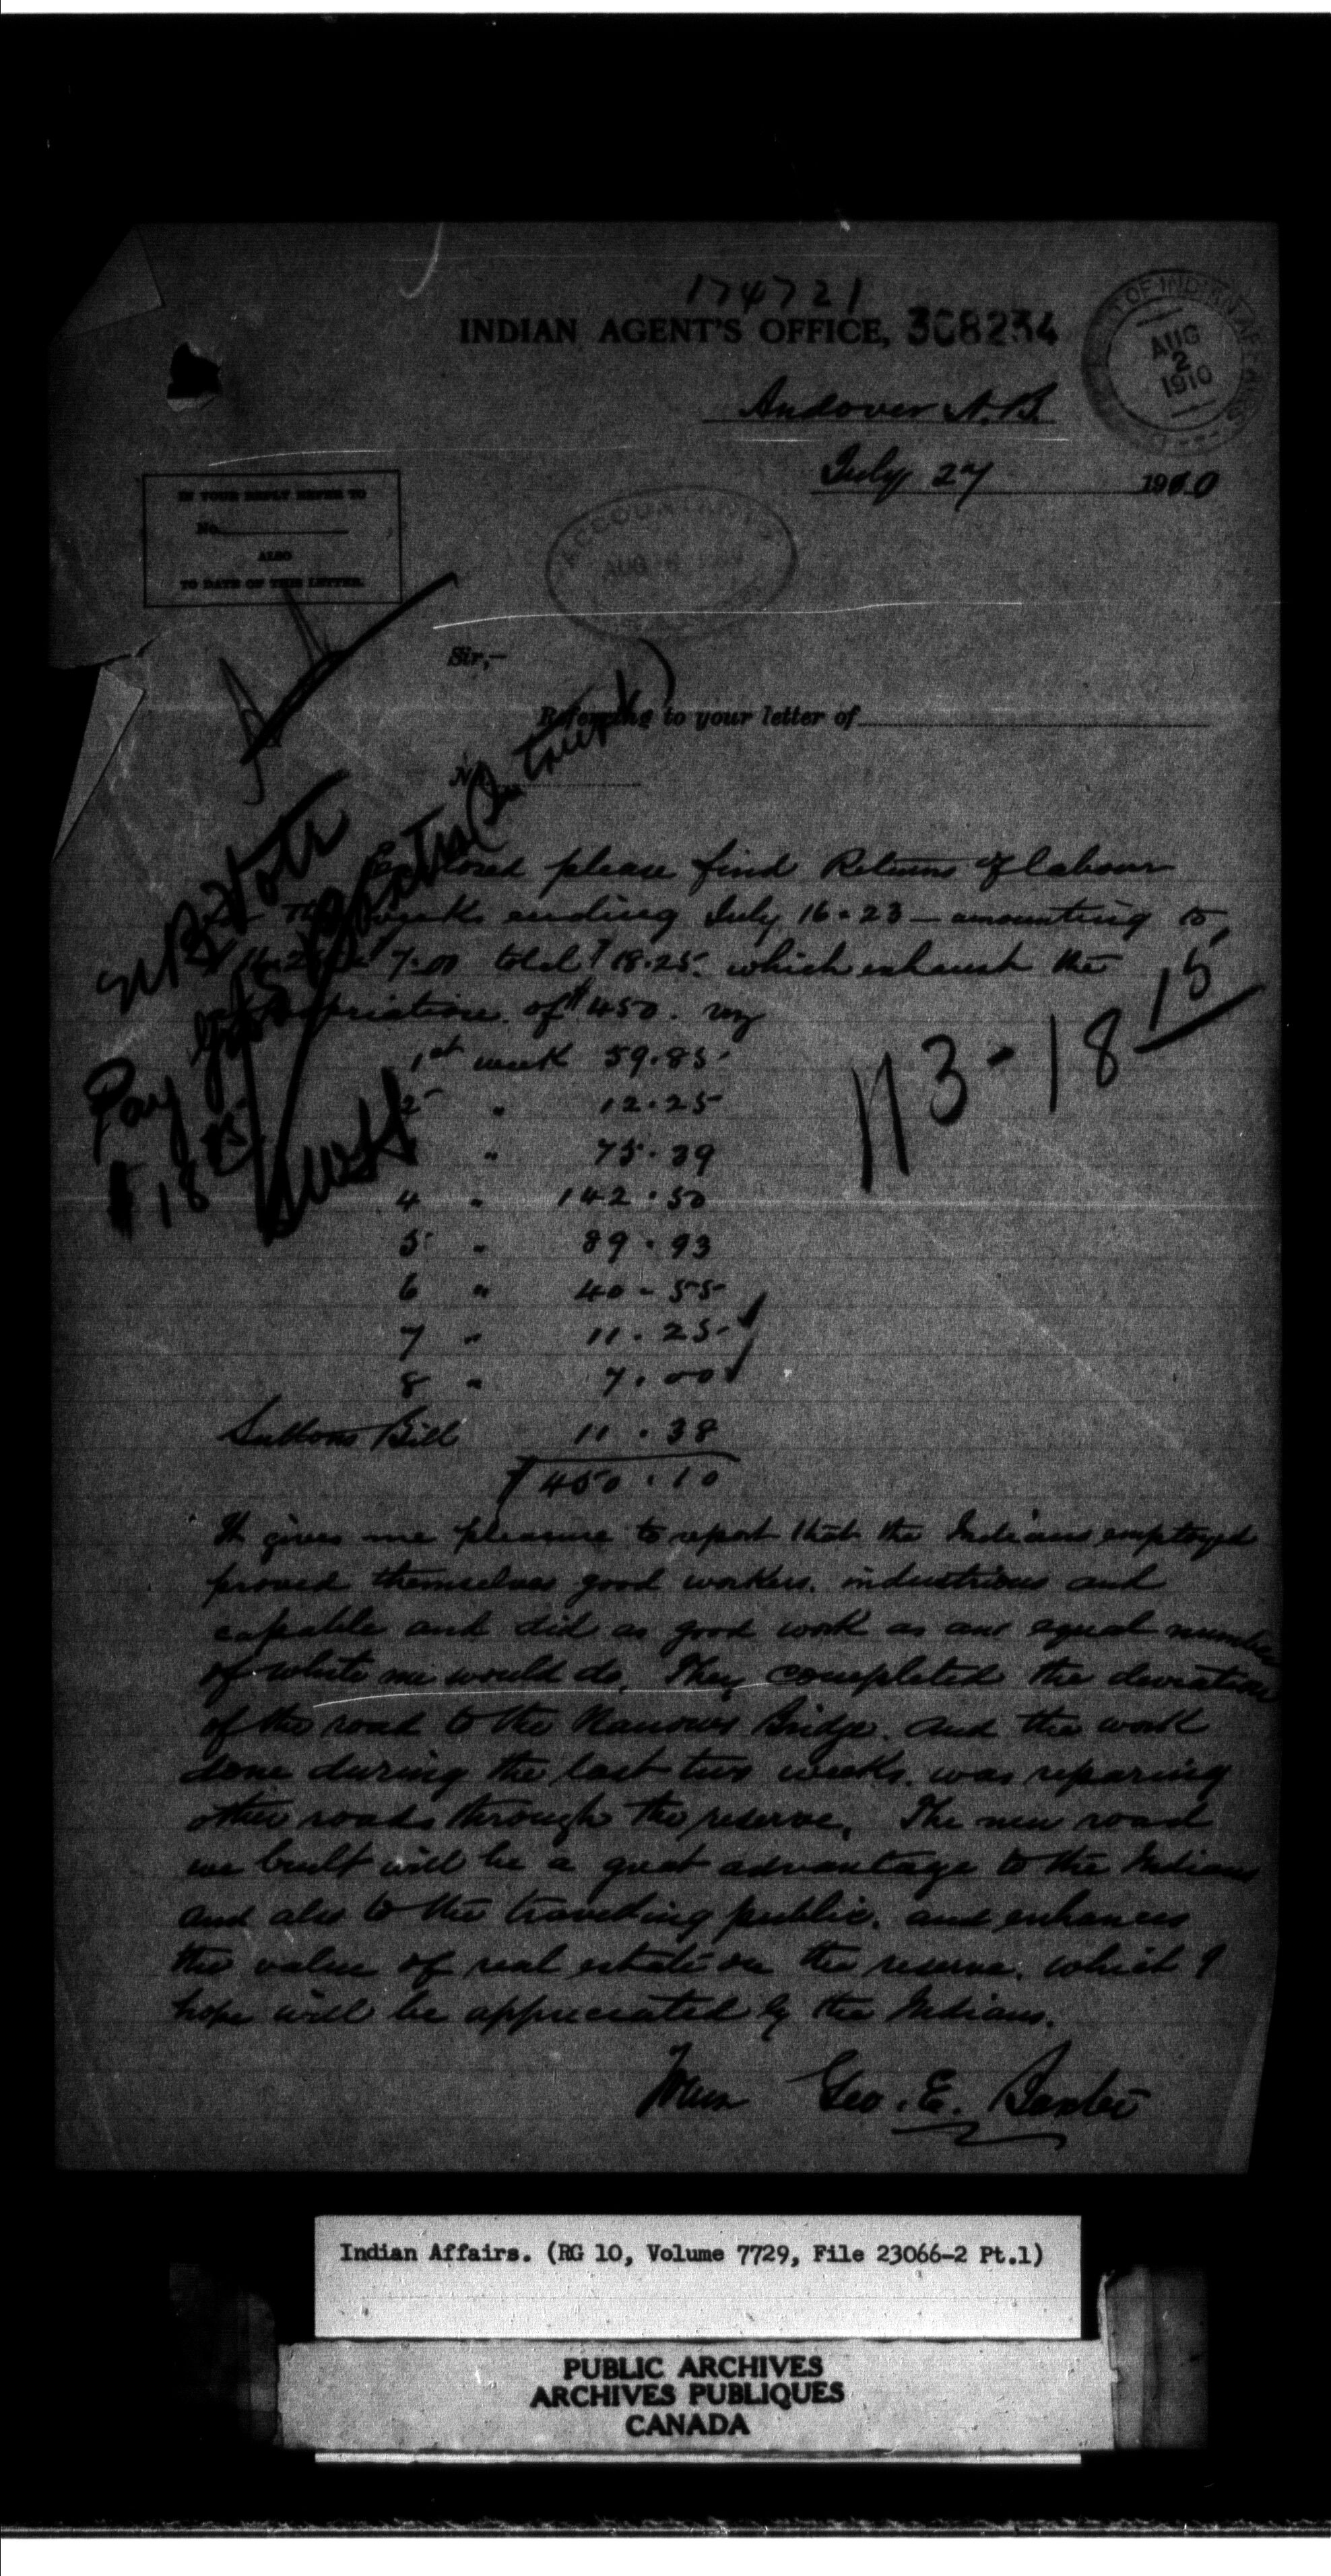 174721
INDIAN AGENT'S OFFICE, 308234
DEPARTMENT OF INDIAN AFFAIRS
AUG
2
1910
Andover N.B.
July 27 1910
IN YOUR REPLY REFER TO
No.
ALSO
TO DATE OF THIS LETTER.
ACCOUNTANT'S
AUG
Sir,—
Referring to your letter of
No.
Enclosed please find Returns of labour
weeks ending July 16 & 23 — amounting to
7.00 total $18.25. which exhaust the
appropriation of $450. viz
1st week 59.85
2 " 12.25
" 75.39
4 " 142.50
5 " 89.93
6 " 40-55
7 " 11.25
8 " 7.00
Suttons Bill 11.38
$450.10
N.B. Vote
Pay
$18
N 3-18 15
It gives me pleasure to report that the Indians employed
proved themselves good workers. industrious and
capable and did as good work as an equal number
of white me would do. They completed the deviation
of the road to the Narrows Bridge. and the work
done during the last two weeks. was reparing
other roads through the reserve. The new road
we built will be a great advantage to the Indians
and also to the traveling public. and enhances
the value of real estate on the reserve. which I
hope will be appreciated by the Indians.
Geo. E. Baxter
Indian Affairs. (RG 10, Volume 7729, File 23066-2 Pt.1)
PUBLIC ARCHIVES
ARCHIVES PUBLIQUES
CANADA